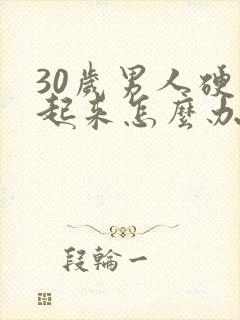 30歲男人硬
起來怎麼办
段輪一